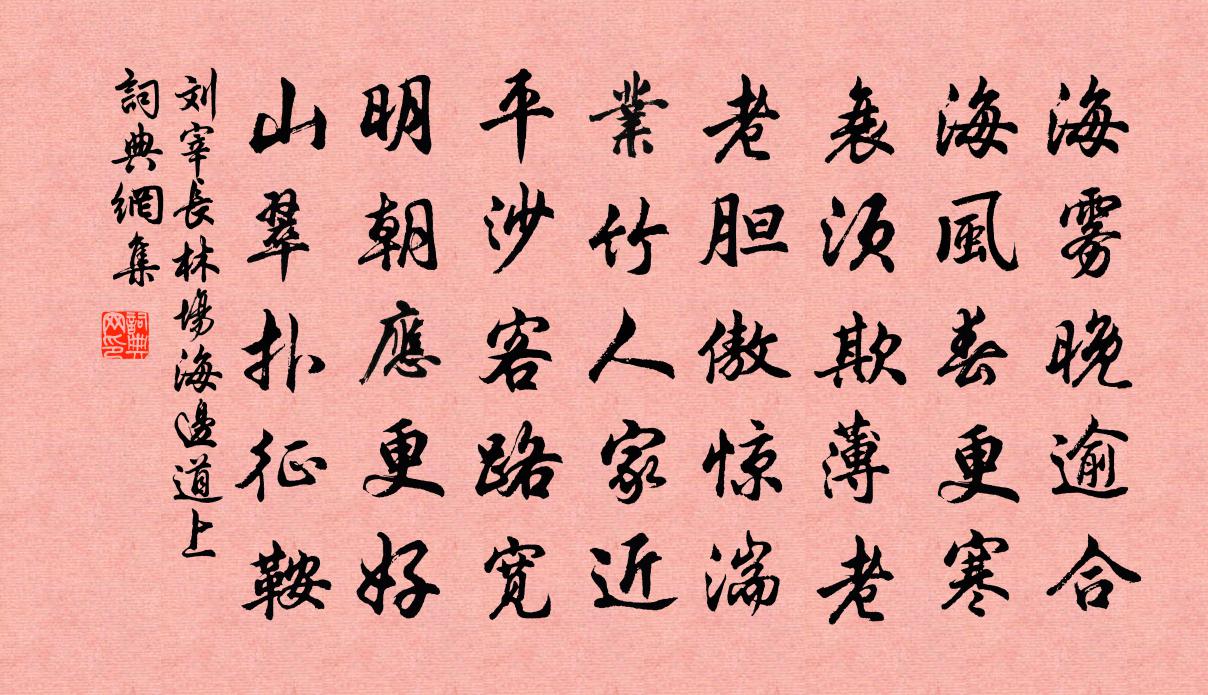 海雾晚逾合
海風春更寒
衰须欺薄老
老胆傲惊湍
業竹人家近
平沙客路寬
明朝應更好
山翠扑征鞍
刘宰长林場海邊道上
詞典網集
詞典网印